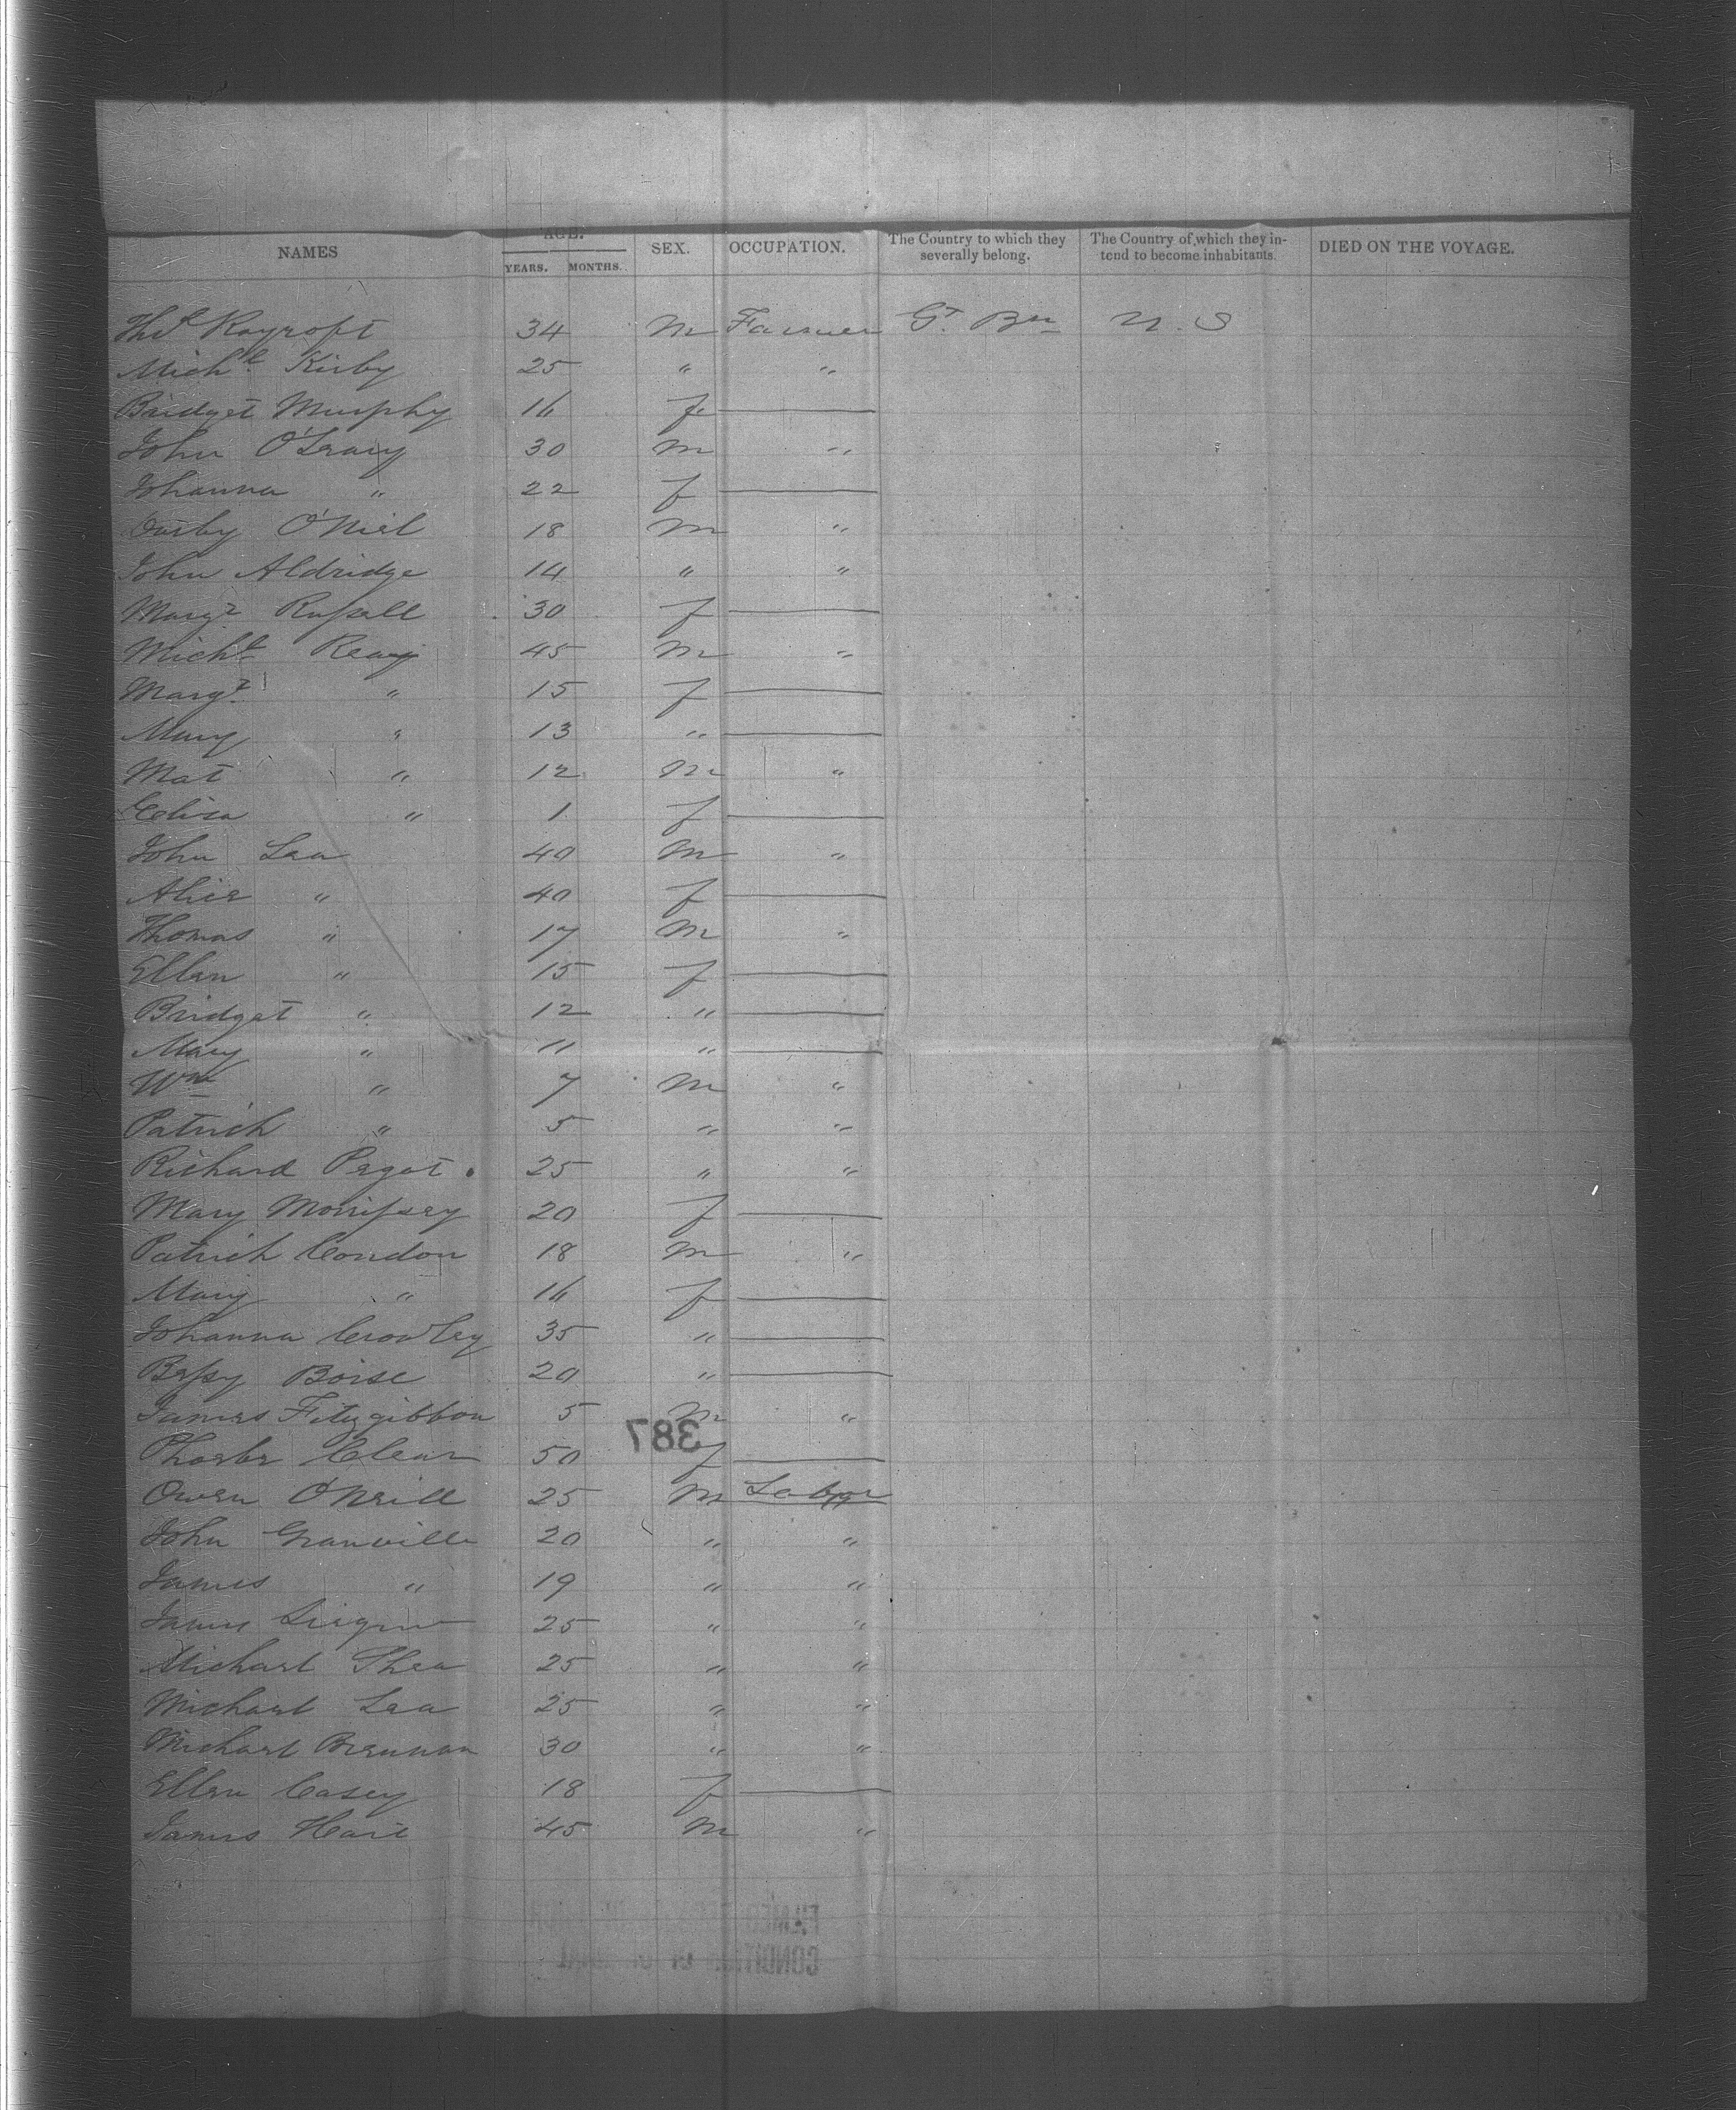 NAMES AGE. SEX. OCCUPATION. The Country to which they severally belong. The Country of which they intend to become inhabitants. DIED ON THE VOYAGE.
YEARS. MONTHS.
Thos Roycroft 34 M Farmer Gt. Bn U. S
Michl Kirby 25 " "
Bridget Murphy 16 f —
John O'Leary 30 M "
Johanna " 22 f —
Darby O'Niel 18 M "
John Aldridge 14 " "
Margt Russell 30 f —
Michl Reay 45 M "
Margt " 15 f —
Mary " 13 " —
Mat " 12 M "
Eliza " 1 f —
John Lea 40 M "
Alice " 40 f —
Thomas " 17 M "
Ellen " 15 f —
Bridget " 12 " —
Mary " 11 " —
Wm " 7 M "
Patrick " 5 " "
Richard Pegot 25 " "
Mary Morrissey 20 f —
Patrick Condon 18 M "
Mary " 16 f —
Johanna Crowley 35 " —
Bessy Boise 20 " —
James Fitzgibbon 5 M "
387
Phoebe Clear 50 f —
Owen O'Neill 25 M Labor
John Granville 20 " "
James " 19 " "
James 25 " "
Michael Shea 25 " "
Michael Lea 25 " "
Michael Brennan 30 " "
Ellen Casey 18 f —
James Hare 45 M "